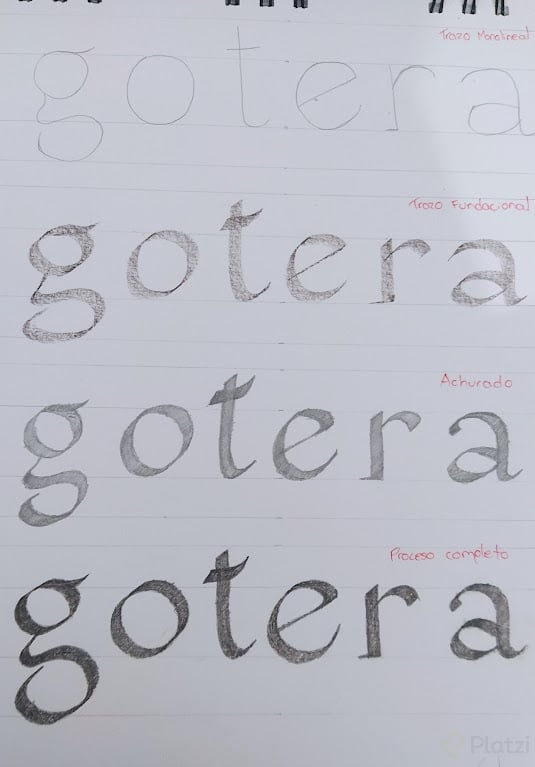 Trazo Monolineal
gotera
Trazo Fundacional
gotera
Achurado
gotera
Proceso completo
gotera
Platzi